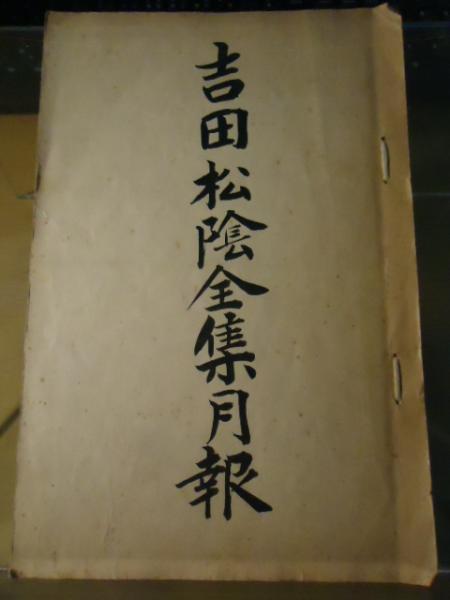 吉田松陰全集月報